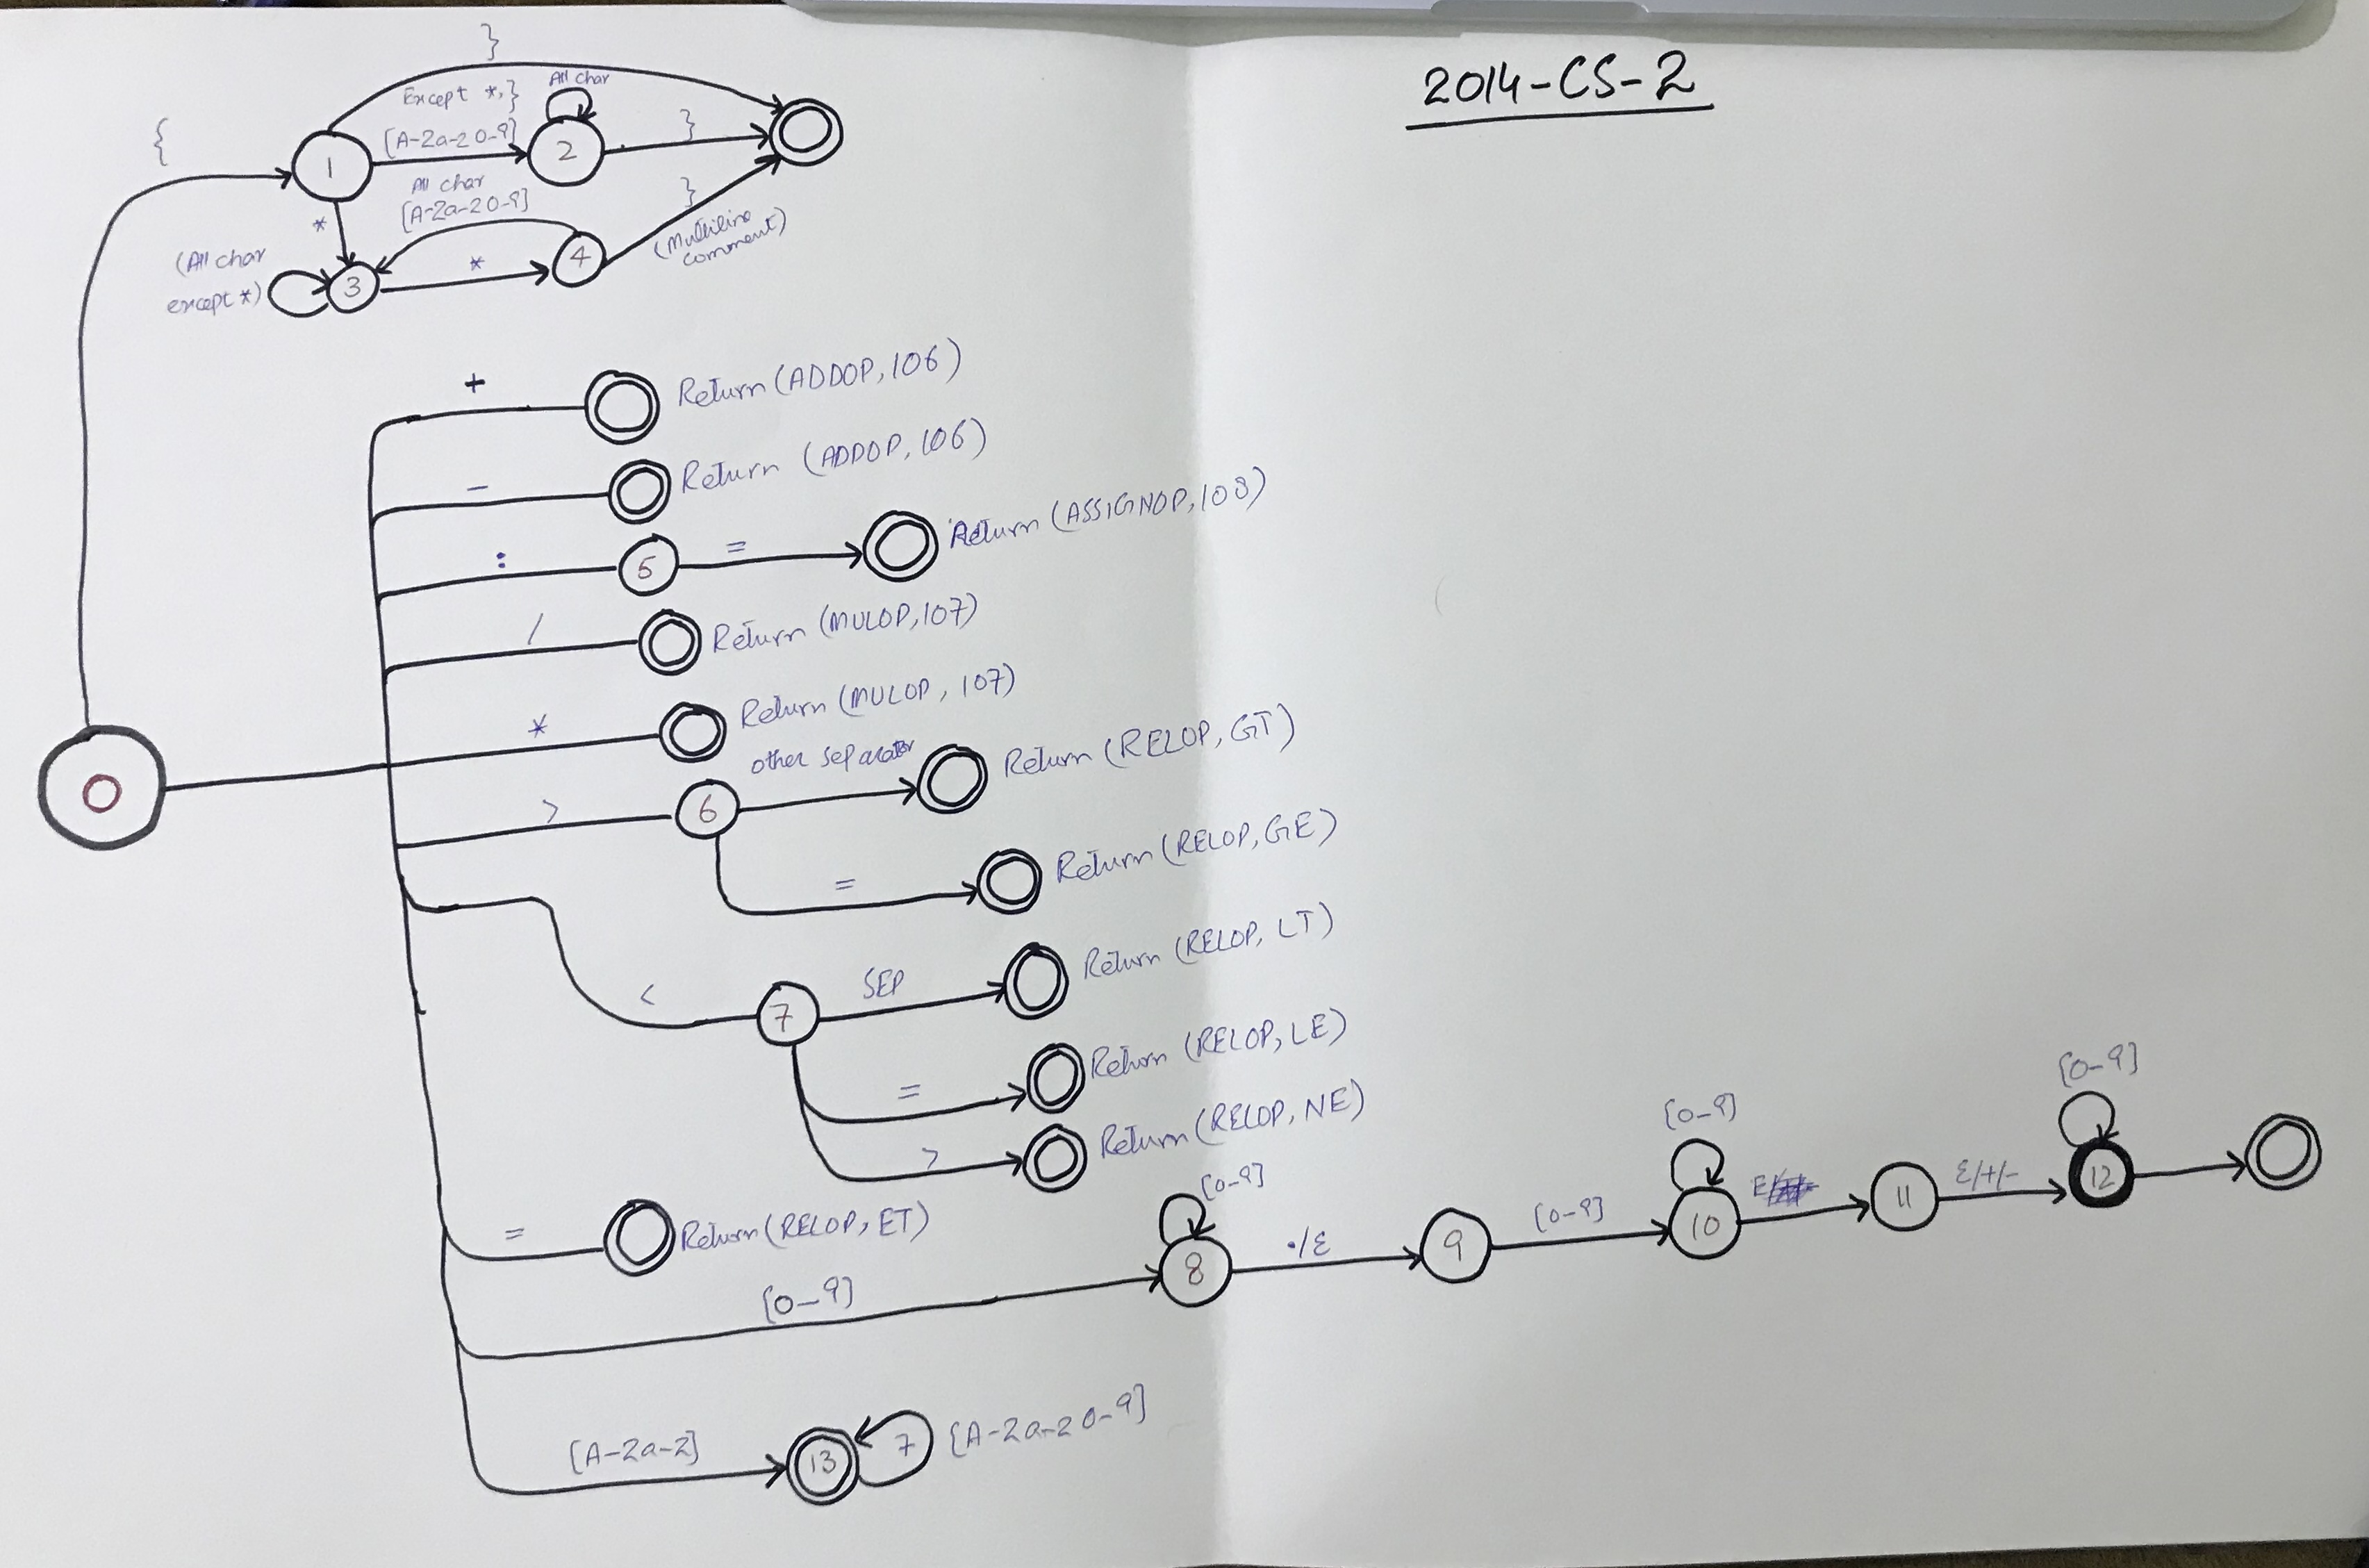 2014-CS-2
}
All char
Except *,}
{
[A-Za-z0-9]
}
1
2
All char
[A-Za-z0-9]
}
*
(All char
except *)
*
3
4
(Multiline
comment)
+
Return (ADDOP, 106)
-
Return (ADDOP, 106)
:
5
=
Return (ASSIGNOP, 108)
/
Return (MULOP, 107)
*
Return (MULOP, 107)
0
other separator
>
6
Return (RELOP, GT)
=
Return (RELOP, GE)
<
7
SEP
Return (RELOP, LT)
=
Return (RELOP, LE)
>
Return (RELOP, NE)
=
Return (RELOP, ET)
[0-9]
[0-9]
8
./ε
9
[0-9]
[0-9]
10
E/
11
ε/+/-
[0-9]
12
[A-Za-z]
13
7
[A-Za-z0-9]